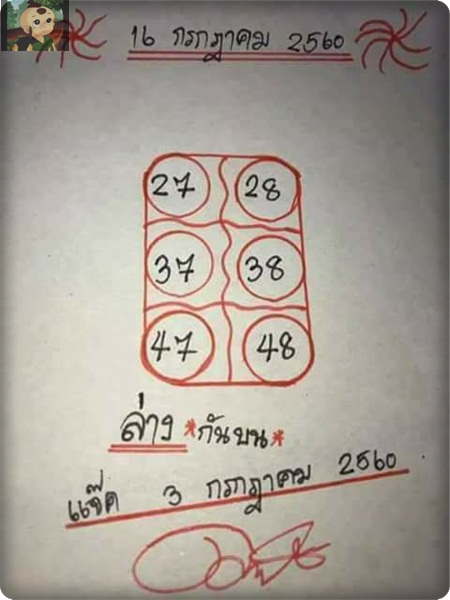 16 กรกฎาคม 2560
27 28
37 38
47 48
ล่าง *กันบน*
แจ๊ค 3 กรกฎาคม 2560